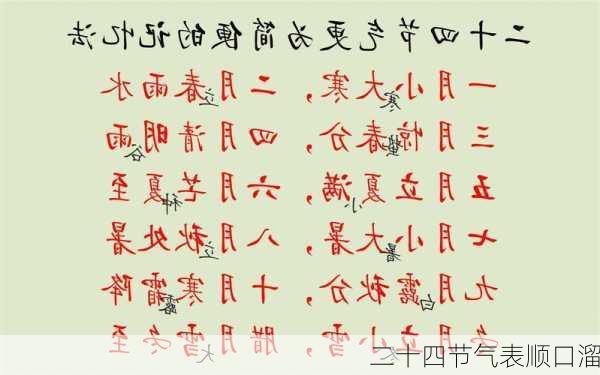 二十四节气更为简便的记忆法
一月小寒大寒，二月立春雨水
三月惊蛰春分，四月清明谷雨
五月立夏小满，六月芒种夏至
七月小暑大暑，八月立秋处暑
九月白露秋分，十月寒露霜降
冬月立冬小雪，腊月大雪冬至
二十四节气表顺口溜